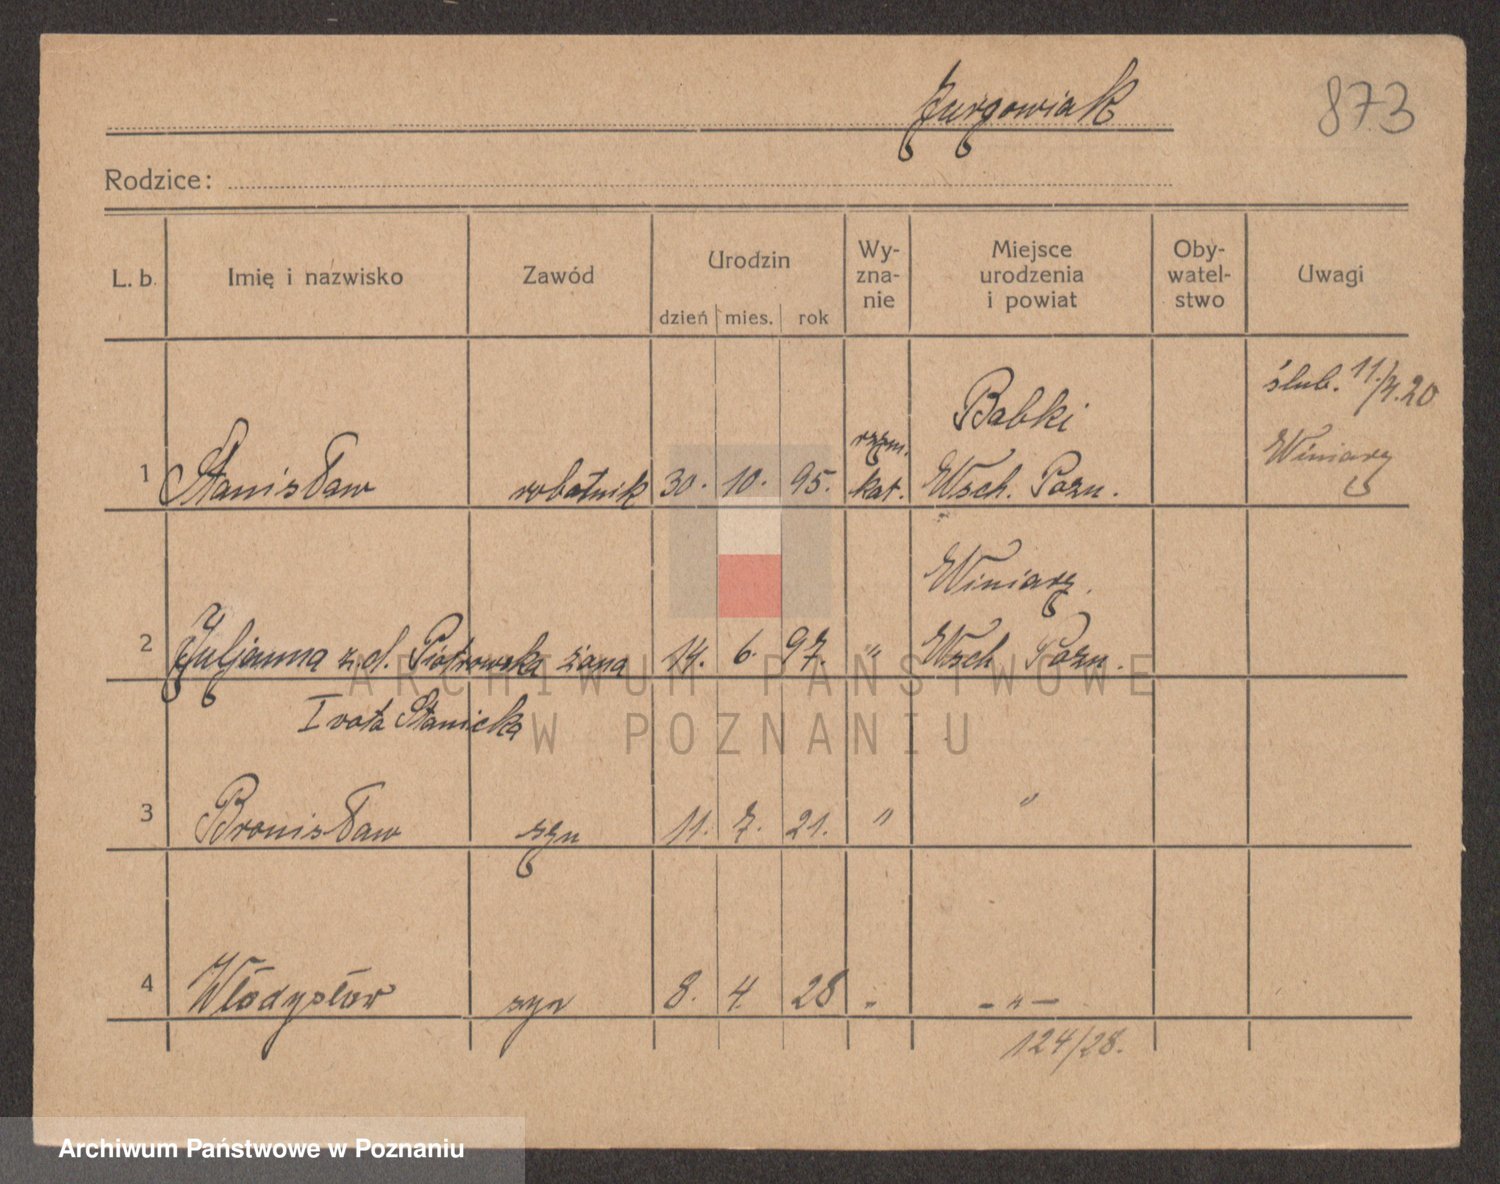 Jurgowiak
873
Rodzice:
L. b. Imię i nazwisko Zawód Urodzin dzień mies. rok Wy-zna-nie Miejsce urodzenia i powiat Oby-watel-stwo Uwagi
1 Stanisław robotnik 30. 10. 95. rzym. kat. Babki Wsch. Pozn. ślub. 11./7.20 Winiary
2 Juljanna z. d. Piotrowska żona 14. 6. 97. " Winiary. Wsch Pozn.
I vota Stanicka
3 Bronisław syn 11. 7. 21. " "
4 Włodysław syn 8. 4. 28 " - " -
124/28.
ARCHIWUM PAŃSTWOWE
W POZNANIU
Archiwum Państwowe w Poznaniu